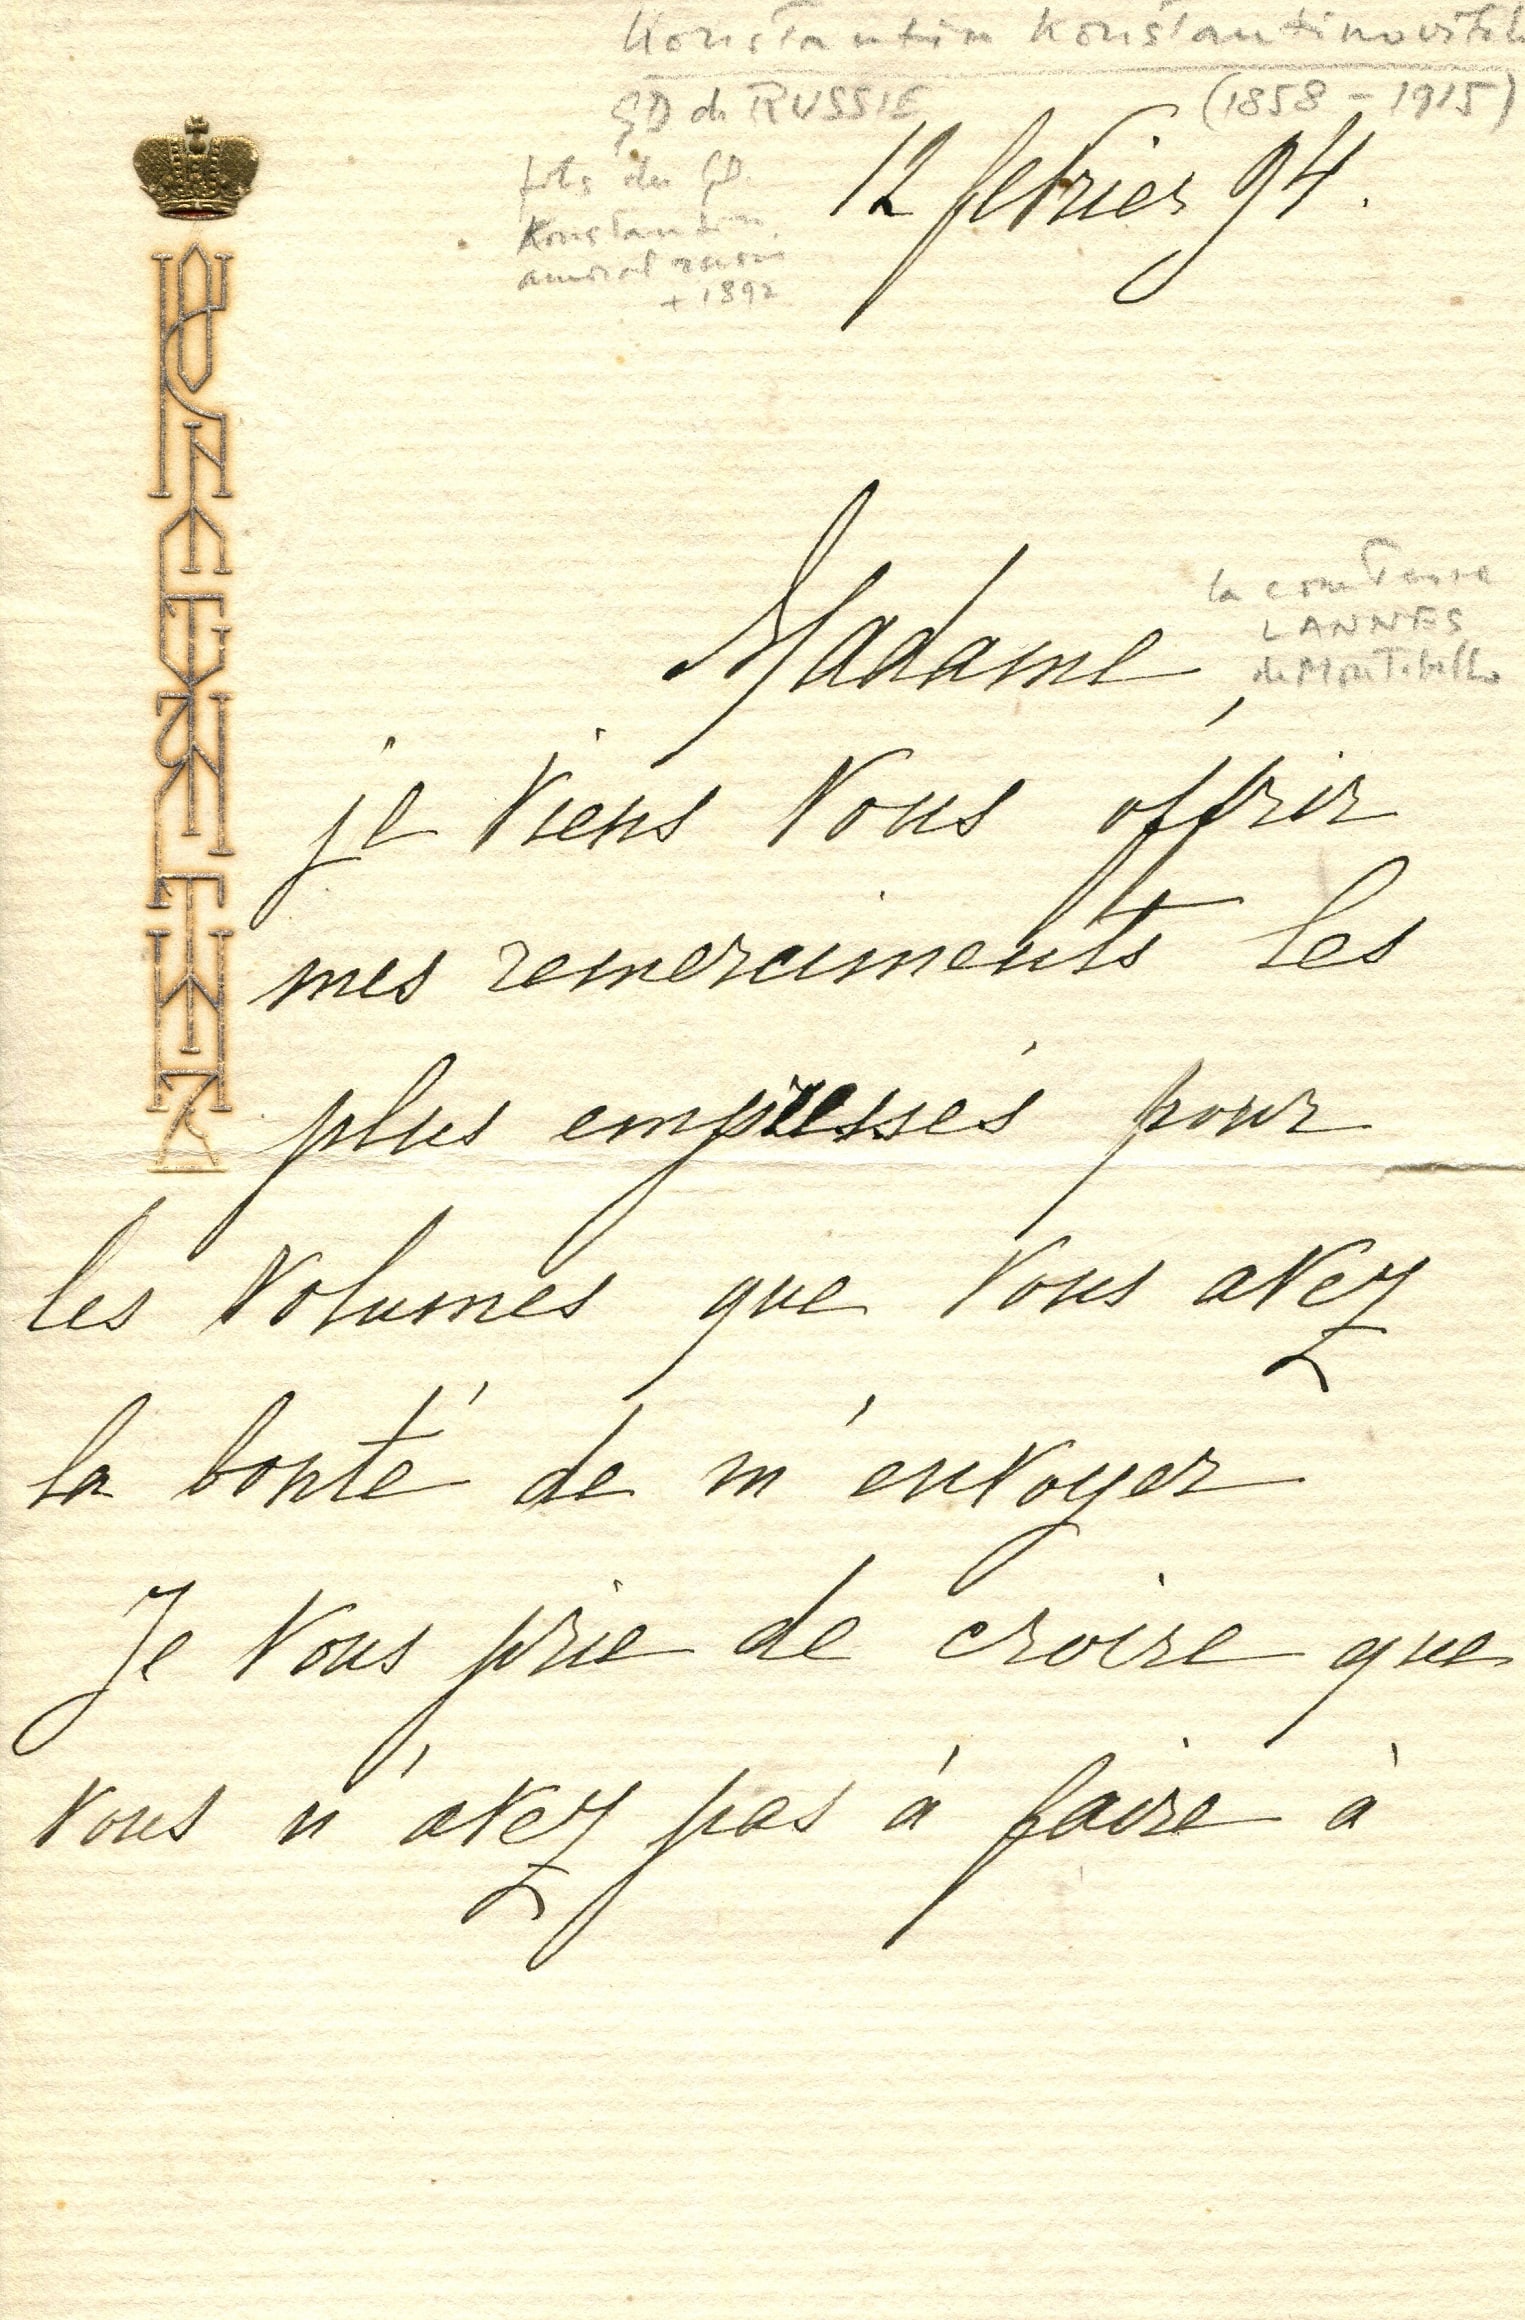 Konstantin Konstantinovitch
GD de RUSSIE (1858 - 1915)
fils du GD.
Konstantin,
amiral russe
+ 1892
12 fevrier 94.
Madame,
la comtesse
LANNES
de Montebello
je viens Vous offrir
mes remerciments les
plus empressés pour
les volumes que Vous avez
la bonté de m'envoyer
Je Vous prie de croire que
Vous n'avez pas à faire à